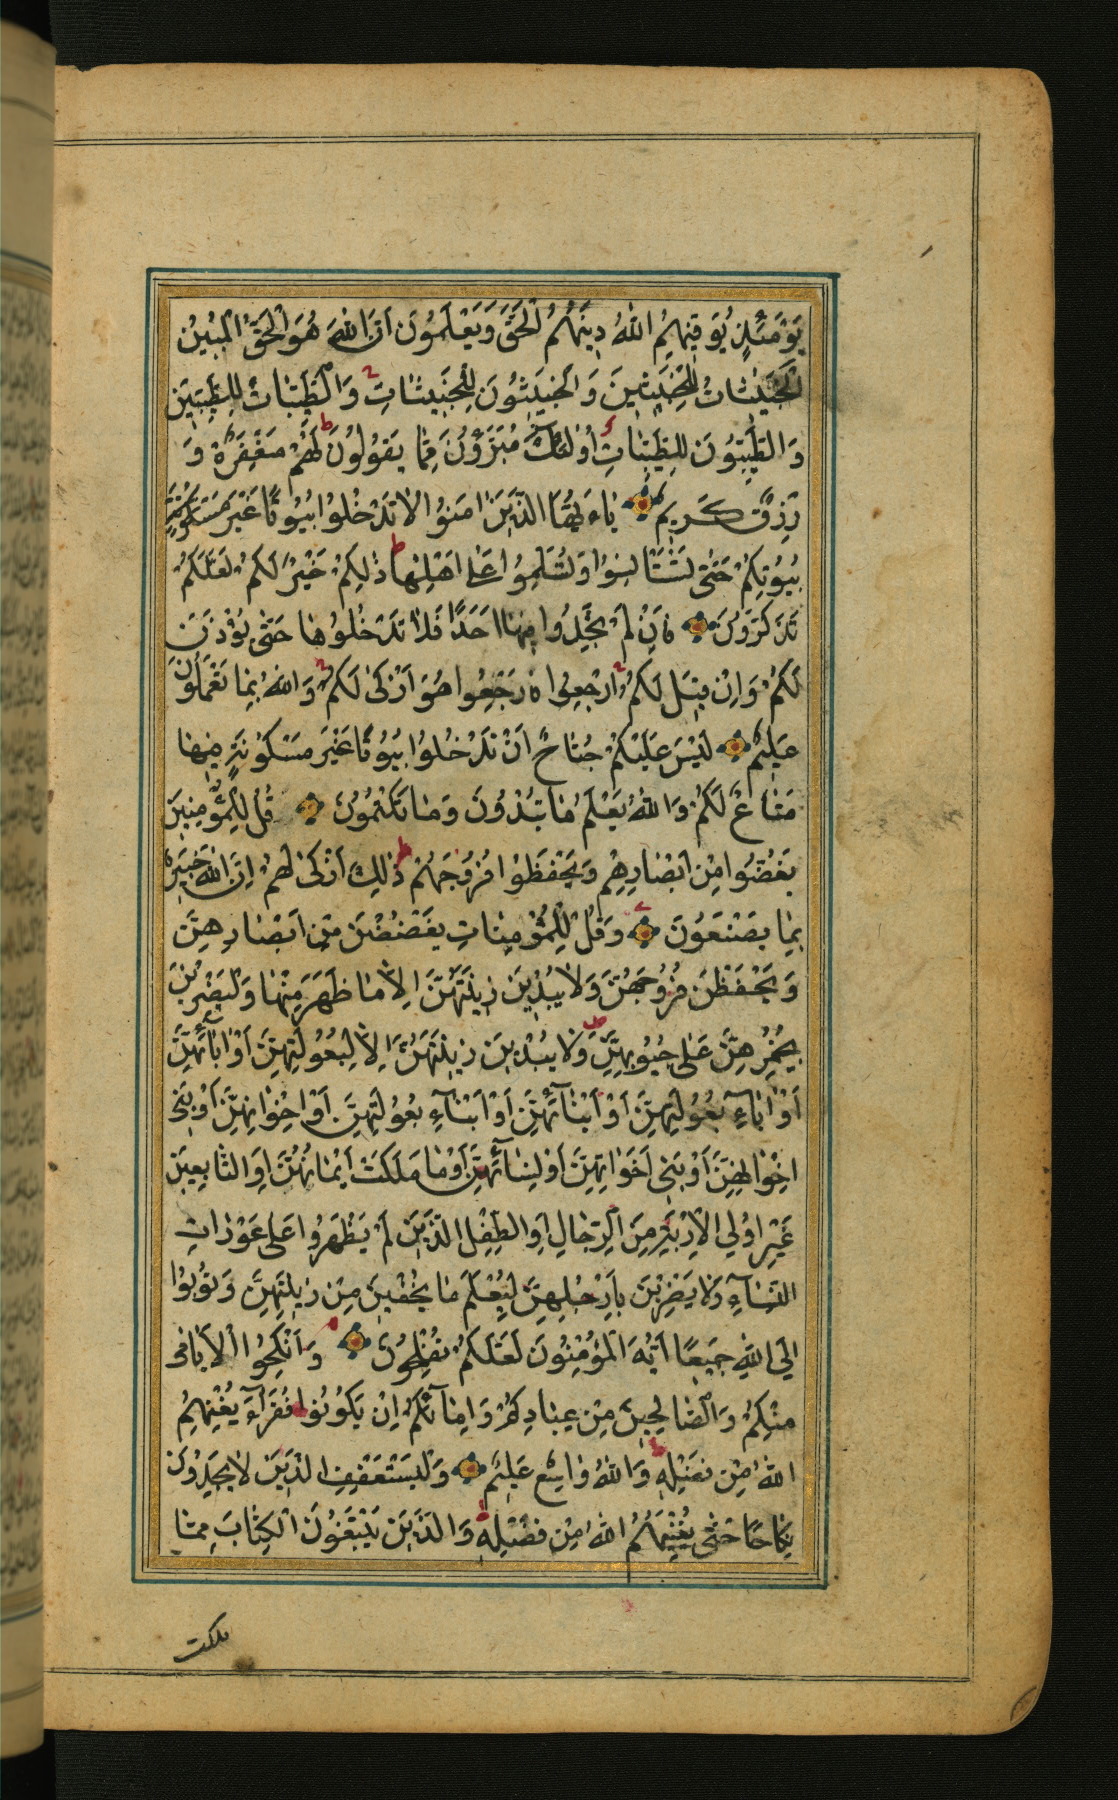 يَوْمَئِذٍ يُوَفِّيهِمُ اللهُ دِينَهُمُ الْحَقَّ وَيَعْلَمُونَ اَنَّ اللهَ هُوَ الْحَقُّ الْمُبِينُ
اَلْخَبِيثَاتُ لِلْخَبِيثِينَ وَالْخَبِيثُونَ لِلْخَبِيثَاتِ وَالطَّيِّبَاتُ لِلطَّيِّبِينَ
وَالطَّيِّبُونَ لِلطَّيِّبَاتِ أُولَئِكَ مُبَرَّؤُنَ مِمَّا يَقُولُونَ لَهُمْ مَغْفِرَةٌ وَ
رِزْقٌ كَرِيمٌ يَاءَيُّهَا الَّذِينَ امَنُوا لَا تَدْخُلُوا بُيُوتًا غَيْرَ
بُيُوتِكُمْ حَتَّى تَسْتَانِسُوا وَتُسَلِّمُوا عَلَى اَهْلِهَا ذَلِكُمْ خَيْرٌ لَكُمْ لَعَلَّكُمْ
تَذَكَّرُونَ فَاِنْ لَمْ تَجِدُوا فِيهَا اَحَدًا فَلَا تَدْخُلُوهَا حَتَّى يُؤْذَنَ
لَكُمْ وَاِنْ قِيلَ لَكُمُ ارْجِعُوا فَارْجِعُوا هُوَ اَزْكَى لَكُمْ وَاللهُ بِمَا تَعْمَلُونَ
عَلِيمٌ لَيْسَ عَلَيْكُمْ جُنَاحٌ اَنْ تَدْخُلُوا بُيُوتًا غَيْرَ مَسْكُونَةٍ فِيهَا
مَتَاعٌ لَكُمْ وَاللهُ يَعْلَمُ مَا تُبْدُونَ وَمَا تَكْتُمُونَ قُلْ لِلْمُؤْمِنِينَ
يَغُضُّوا مِنْ اَبْصَارِهِمْ وَيَحْفَظُوا فُرُوجَهُمْ ذَلِكَ اَزْكَى لَهُمْ اِنَّ اللهَ خَبِيرٌ
بِمَا يَصْنَعُونَ وَقُلْ لِلْمُؤْمِنَاتِ يَغْضُضْنَ مِنْ اَبْصَارِهِنَّ
وَيَحْفَظْنَ فُرُوجَهُنَّ وَلَا يُبْدِينَ زِينَتَهُنَّ اِلَّا مَا ظَهَرَ مِنْهَا وَلْيَضْرِبْنَ
بِخُمُرِهِنَّ عَلَى جُيُوبِهِنَّ وَلَا يُبْدِينَ زِينَتَهُنَّ اِلَّا لِبُعُولَتِهِنَّ اَوْ ابَآئِهِنَّ
اَوْ ابَاءِ بُعُولَتِهِنَّ اَوْ اَبْنَآئِهِنَّ اَوْ اَبْنَآءِ بُعُولَتِهِنَّ اَوْ اِخْوَانِهِنَّ اَوْ بَنِى
اِخْوَانِهِنَّ اَوْ بَنِى اَخَوَاتِهِنَّ اَوْ نِسَآئِهِنَّ اَوْ مَا مَلَكَتْ اَيْمَانُهُنَّ اَوِ التَّابِعِينَ
غَيْرِ اُولِي الْاِرْبَةِ مِنَ الرِّجَالِ اَوِ الطِّفْلِ الَّذِينَ لَمْ يَظْهَرُوا عَلَى عَوْرَاتِ
النِّسَآءِ وَلَا يَضْرِبْنَ بِاَرْجُلِهِنَّ لِيُعْلَمَ مَا يُخْفِينَ مِنْ زِينَتِهِنَّ وَتُوبُوا
اِلَى اللهِ جَمِيعًا اَيُّهَ الْمُؤْمِنُونَ لَعَلَّكُمْ تُفْلِحُونَ وَاَنْكِحُوا الْاَيَامَى
مِنْكُمْ وَالصَّالِحِينَ مِنْ عِبَادِكُمْ وَاِمَآئِكُمْ اِنْ يَكُونُوا فُقَرَآءَ يُغْنِهِمُ
اللهُ مِنْ فَضْلِهِ وَاللهُ وَاسِعٌ عَلِيمٌ وَلْيَسْتَعْفِفِ الَّذِينَ لَا يَجِدُونَ
نِكَاحًا حَتَّى يُغْنِيَهُمُ اللهُ مِنْ فَضْلِهِ وَالَّذِينَ يَبْتَغُونَ الْكِتَابَ مِمَّا
ملكت